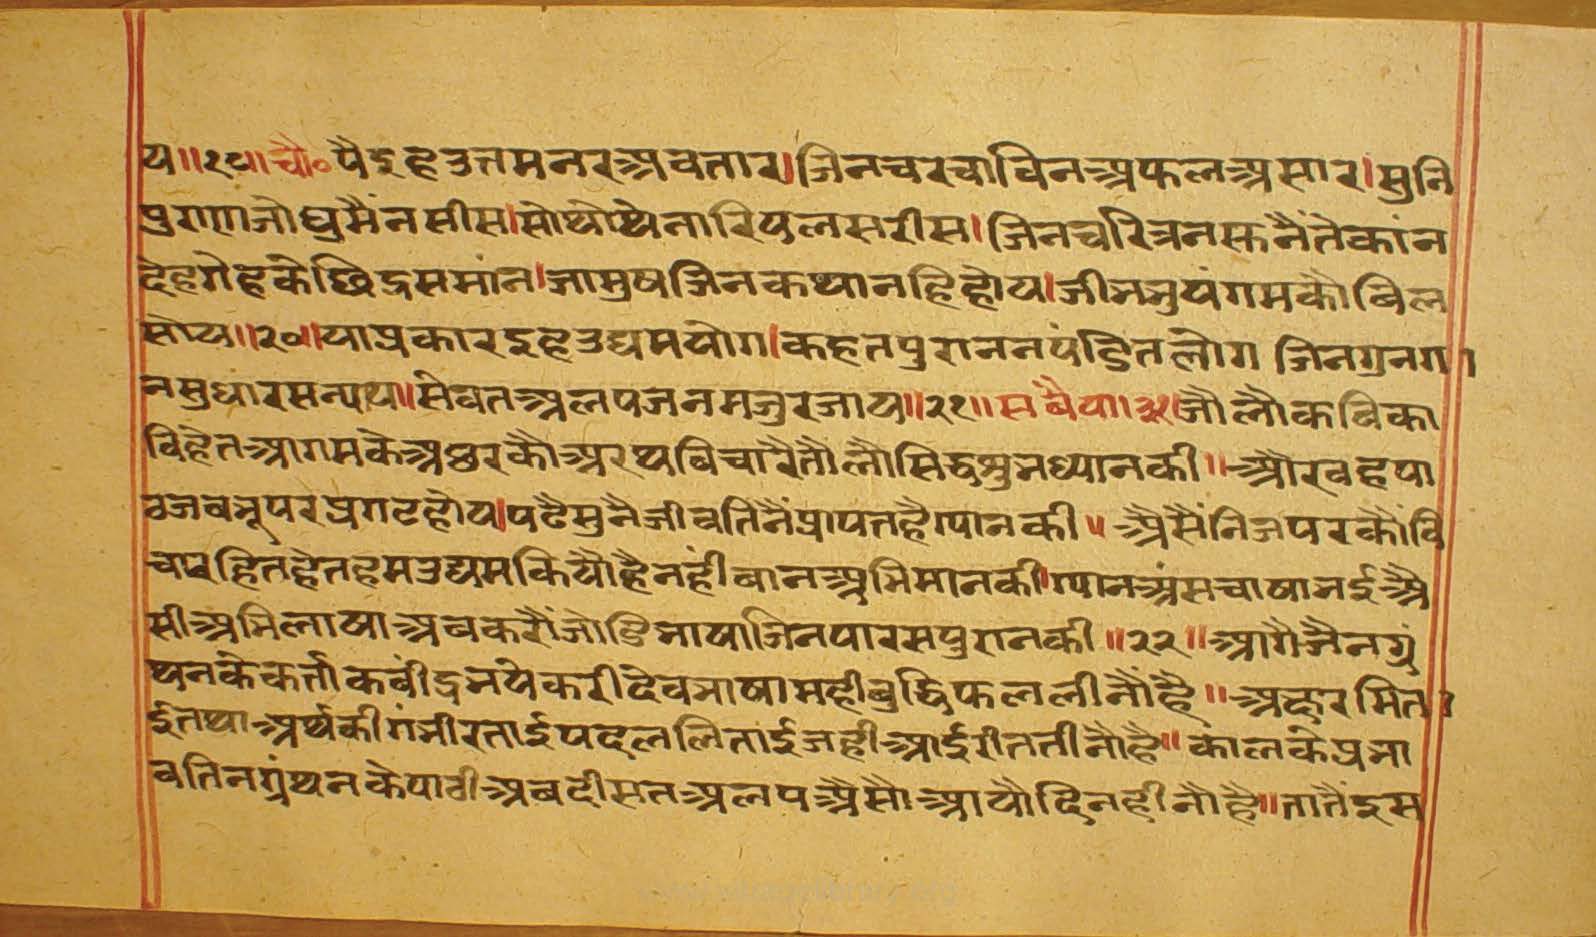 य॥१९॥चौ०पैइह उत्तम नर अवतार।जिन चरचा विन अफल असार।सुनि
पुरान जो घुमै न सीस।सो थोथे नारियल सरीस।जिन चरित्र न सुनै ते कांन
देह गेह के छिद्र समांन।जा मुष जिन कथा नहि होय।जीभ भुयंगम कौ बिल
सोय॥२०॥या प्रकार इह उद्यम योग।कहत पुरानन पंडित लोग जिन गुन गा
न सुधारस न्याय॥सेवत अलप जनम जुर जाय॥२१॥सवैया॥३१।जौ लौ कवि का
वि हेत आगम के अछर कौ अरथ बिचारै तौ लौ सिद्ध सुभ ध्यान की॥और वह पा
ठ जब भू पर प्रगट होय।पढै सुनै जीव तिनैं प्रापत है ग्यान की॥अैसैं निज पर कौ वि
चार हित हेत हम उद्यम कियौ है नहीं बान अभिमान की।ग्यान अंस चाषा भई अै
सी अभिलाषा अब करौं जोडि भाषा जिन पारस पुरान की॥२२॥आगै जैन ग्रं
थन के कर्त्ता कवींद्र भये करी देव भाषा मही बुद्धि फल लीनौं है॥अक्षर मिता
ई तथा अर्थ की गंभीरताई पद ललिताई जही आई रीत तीनौ है॥काल के प्रभा
व तिन ग्रंथन के पाठी अब दीसत अलप अैसौ आयौ दिन हीनौ है॥तातैं इस